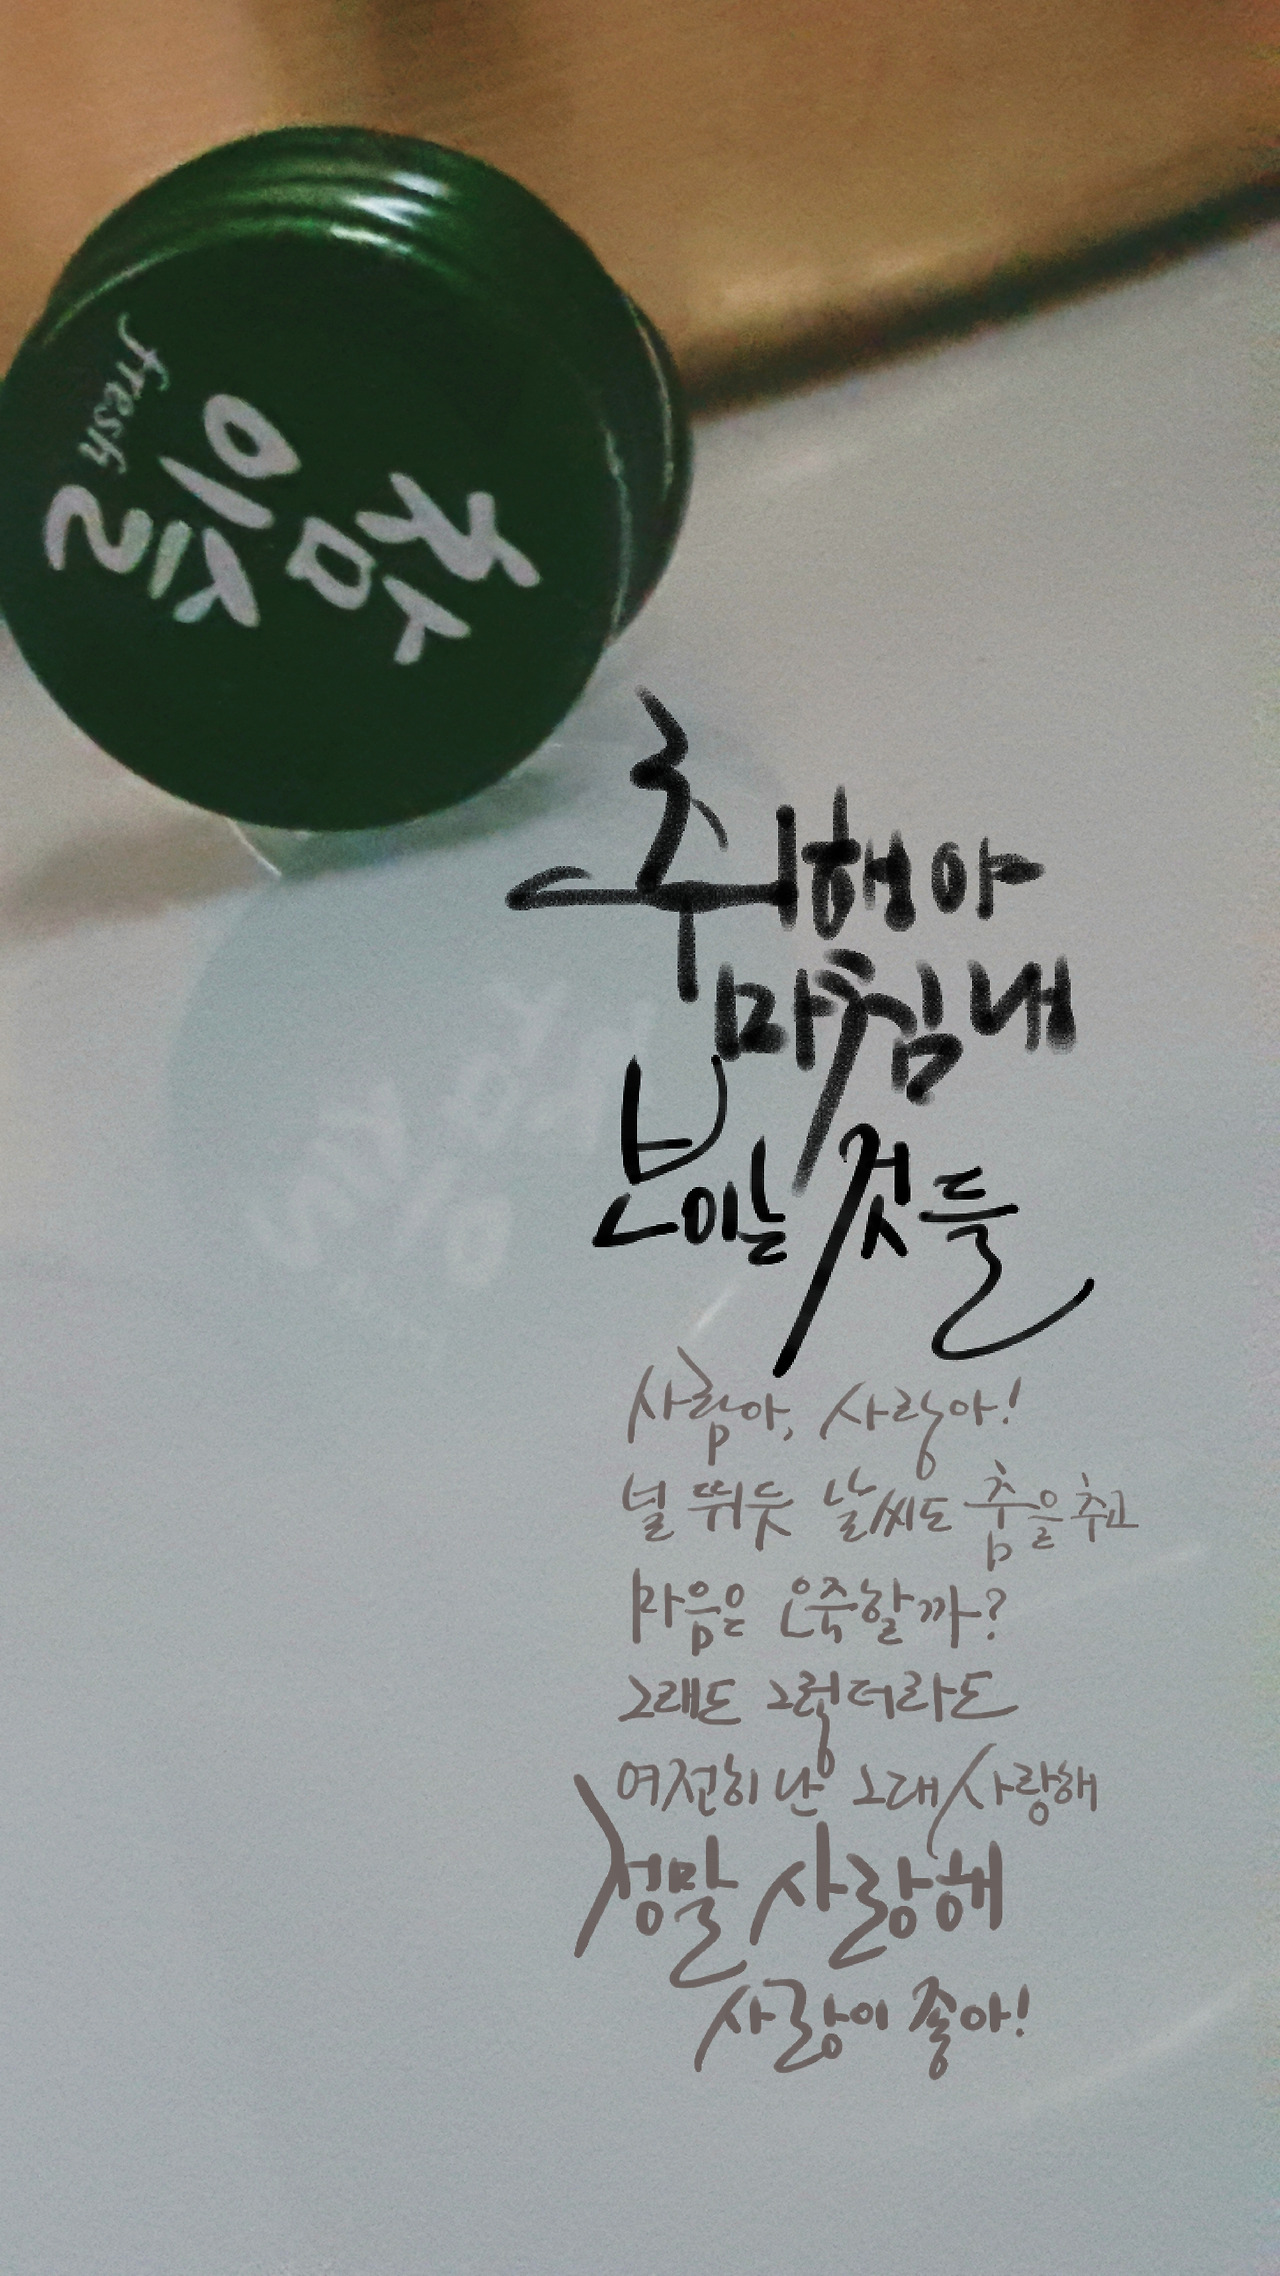 참이슬
fresh
취해야
마침내
보이는 것들
사람아, 사랑아!
널 뛰듯 날씨도 춤을 추고
마음은 오죽할까?
그래도 그렇더라도
여전히 난 그대 사랑해
정말 사랑해
사랑이 좋아!